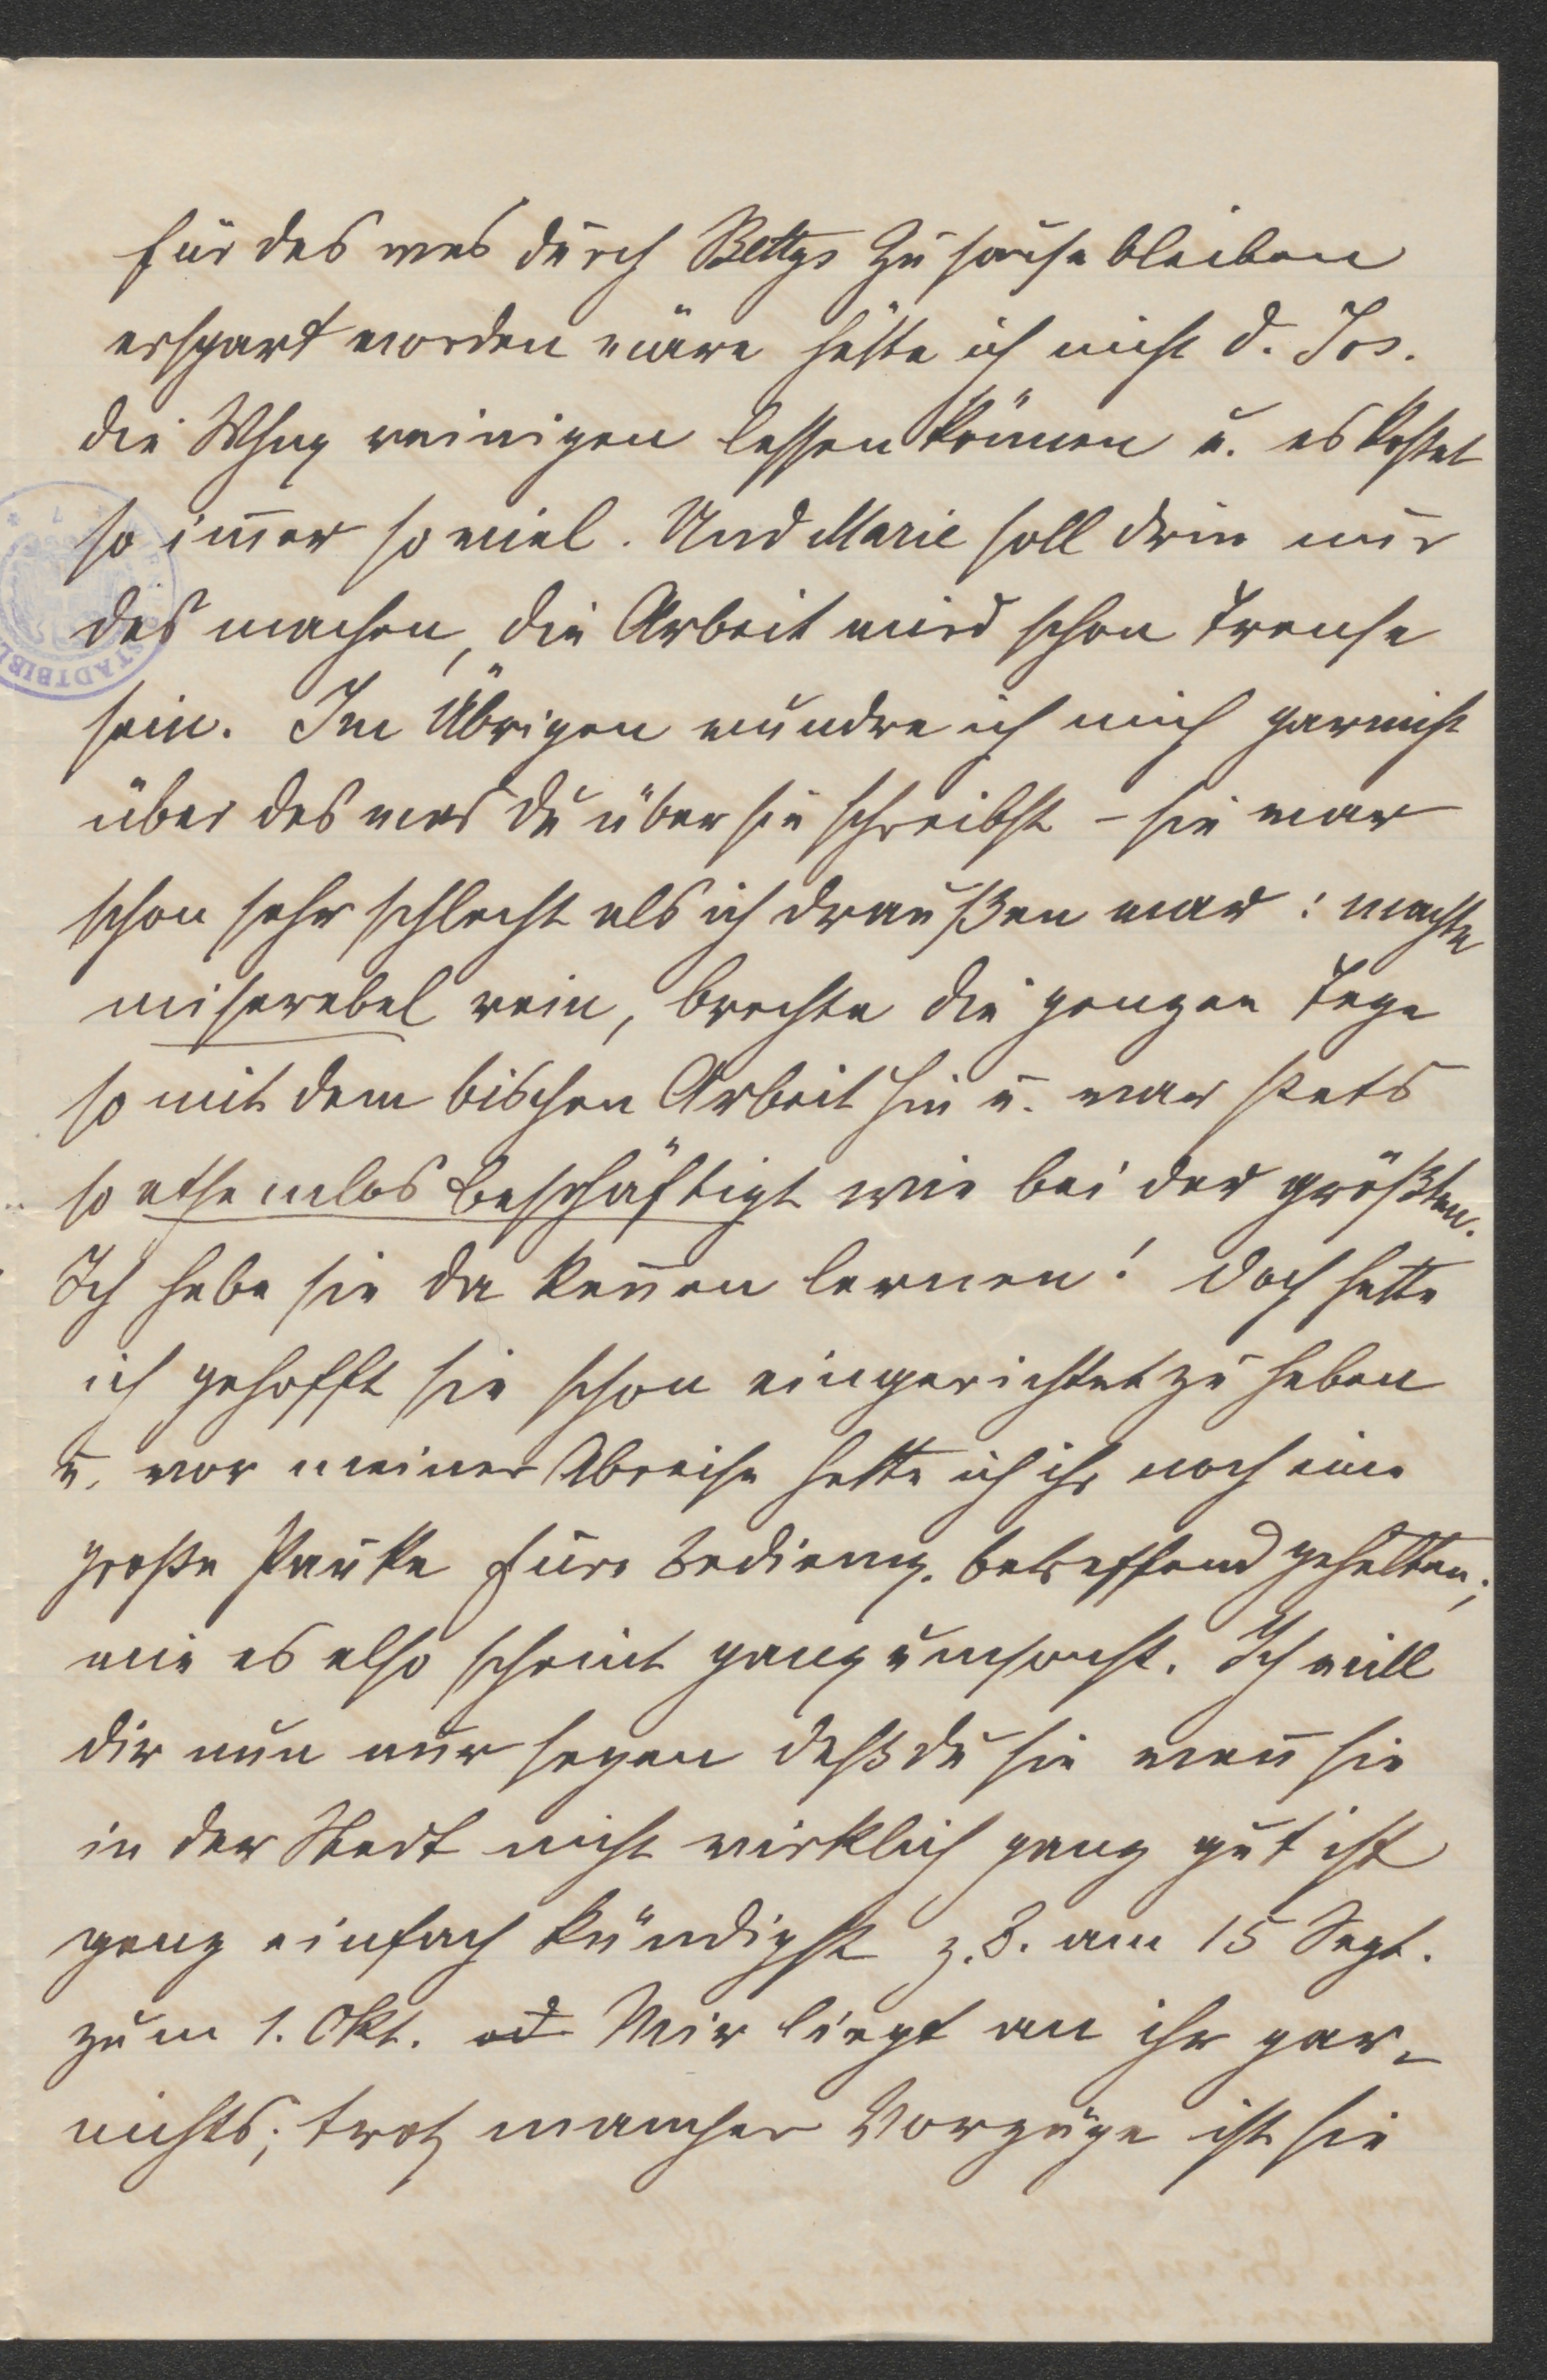 für das was durch Bettys Zuhausebleiben
erspart worden wäre hätte ich nicht d. Jos.
die Whng reinigen lassen können u. es kostet
so im̄er soviel. Und Marie soll drin nur
das machen, die Arbeit wird schon
sein. Im Übrigen wundre ich mich garnicht
über das was du über sie schreibst – sie war
schon sehr schlecht als ich draußen war: machte
miserabel rein, brachte die ganzen Tage
so mit dem bischen Arbeit hin u. war stets
so athemlos beschäftigt wie bei der größten.
Ich habe sie da ken̄en lernen! Doch hatte
ich gehofft sie schon eingerichtet zu haben
u. vor meiner Abreise hatte ich ihr noch eine
große Pauke Eure Bedieng. betreffend gehalten;
wie es also scheint ganz umsonst. Ich will
dir nun nur sagen daß du sie wen̄ sie
in der Stadt nicht wirklich ganz gut ist
ganz einfach kündigst z.B. am 15 Sept.
zum 1. Okt. od Mir liegt an ihr gar-
nichts; trotz mancher Vorzüge ist sie
STADTBIBL